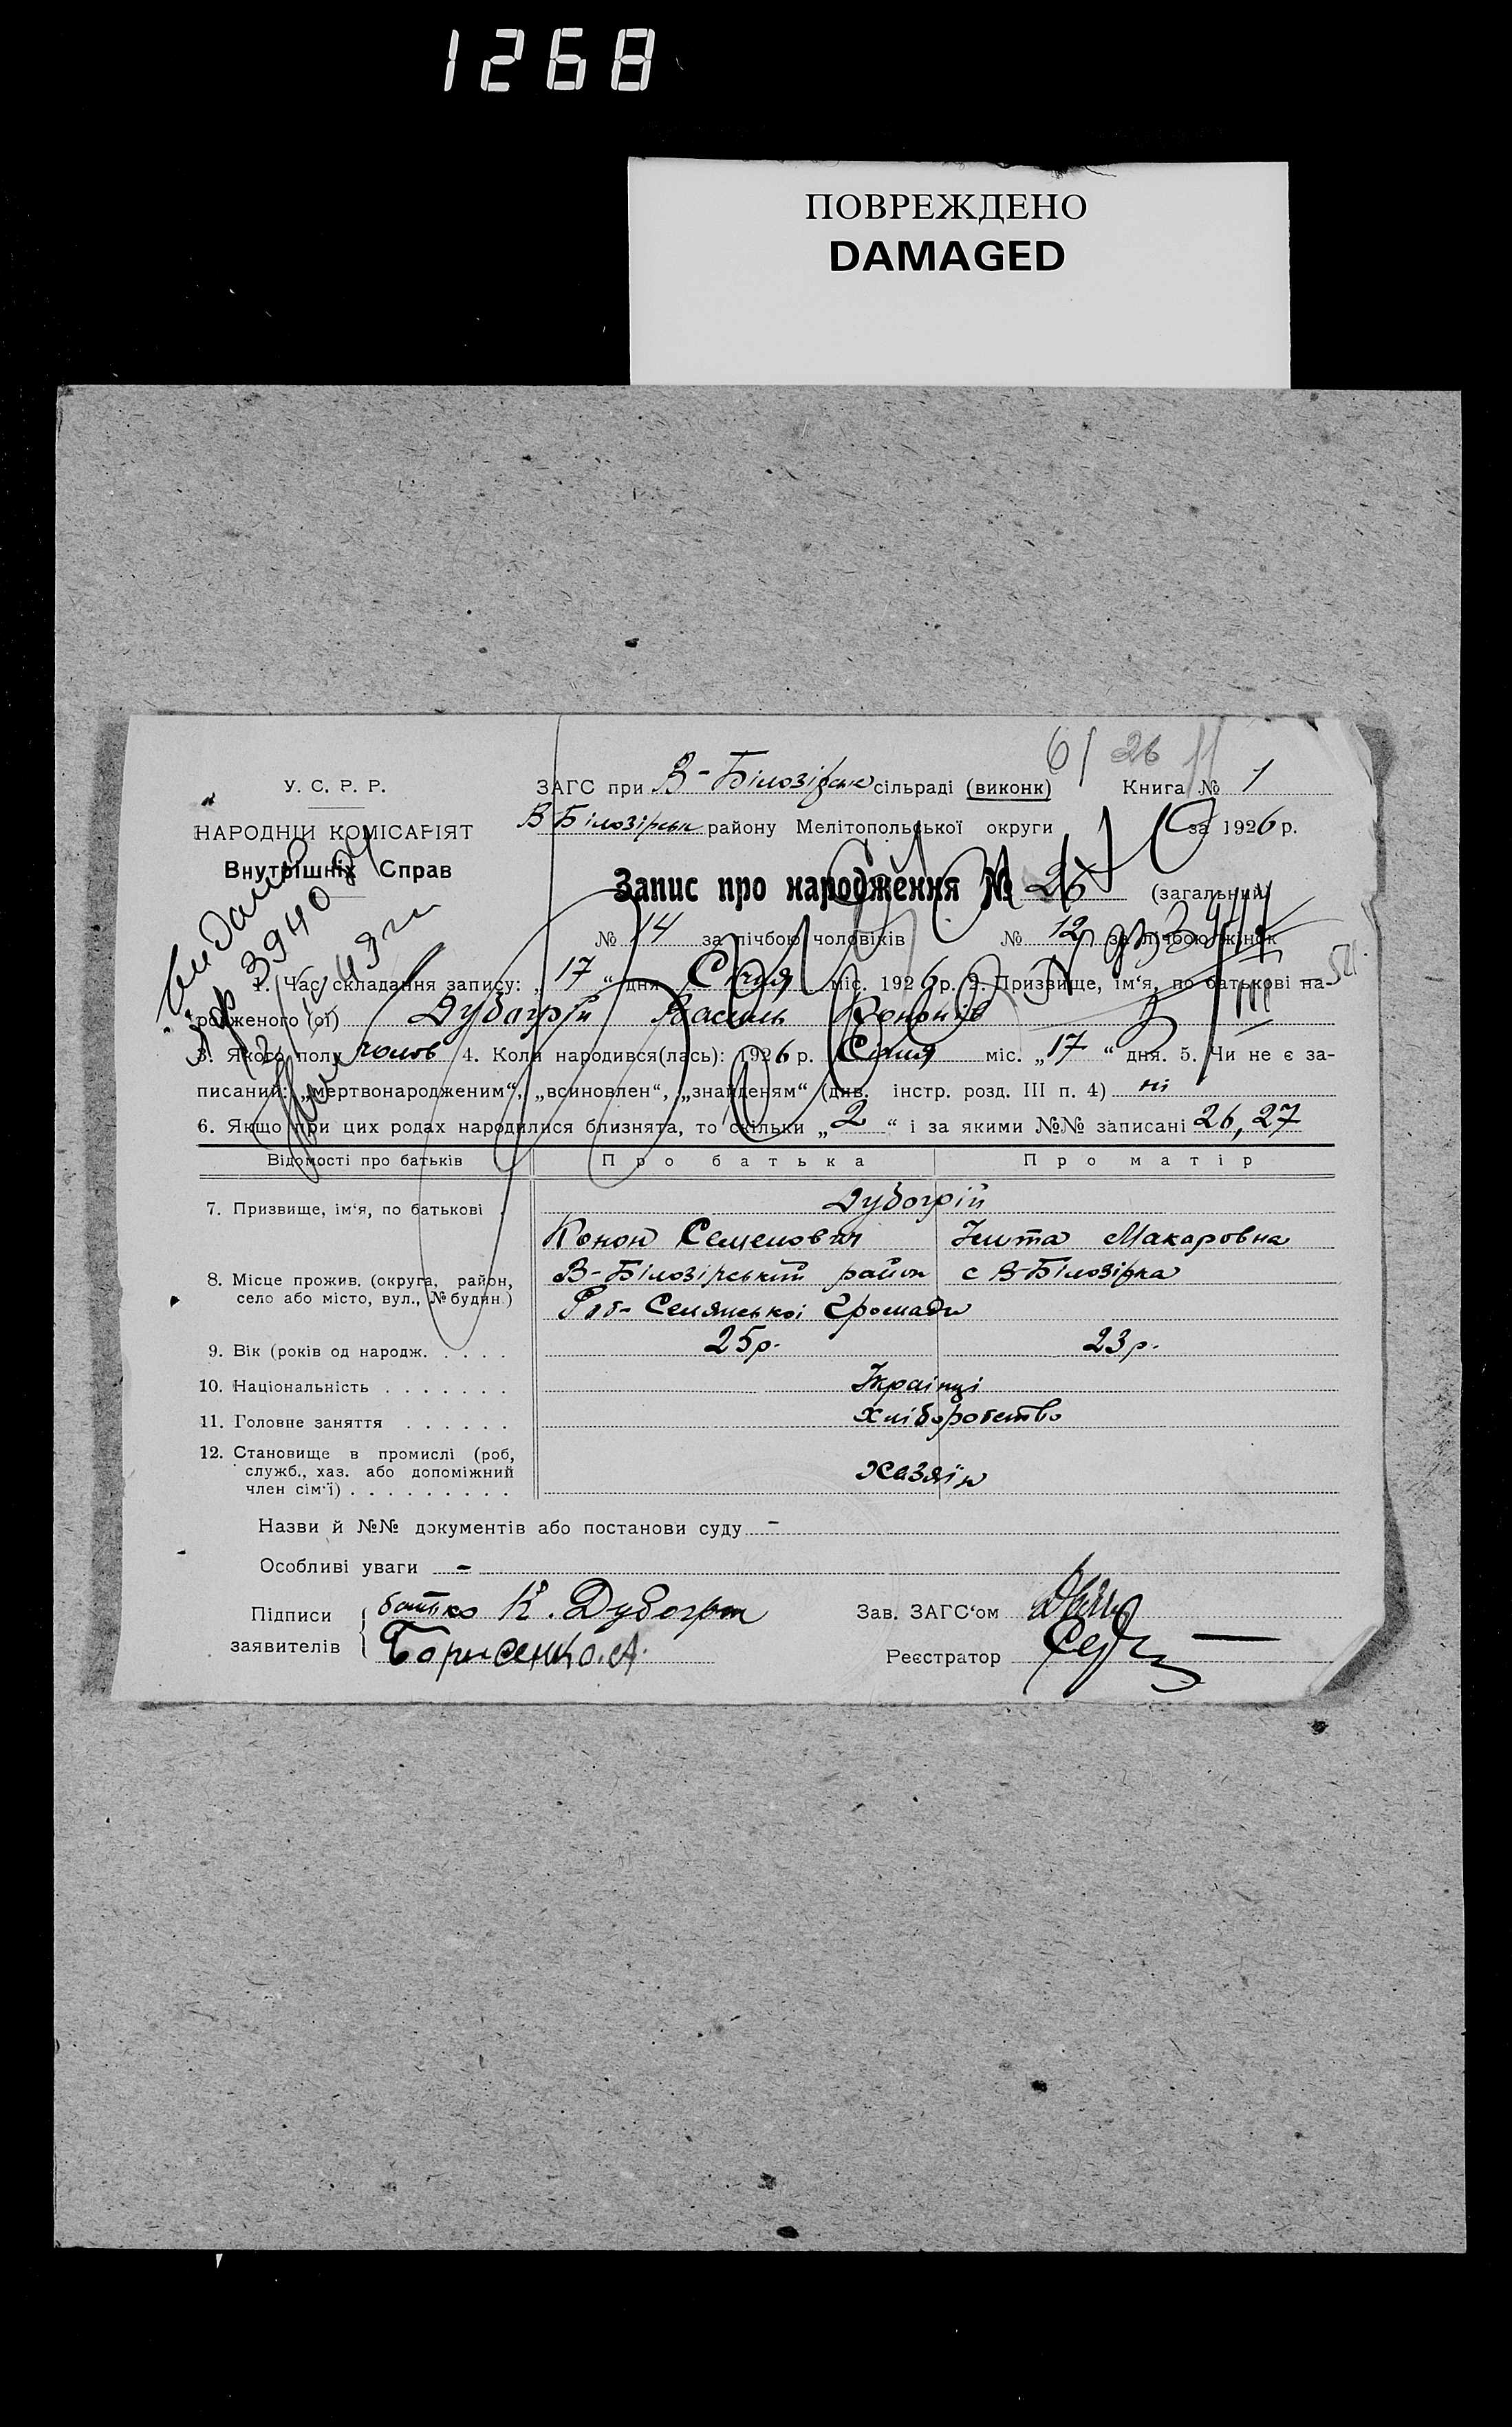 1268
ПОВРЕЖДЕНО
DAMAGED
6/ 26
У. С. Р. Р.
НАРОДНІЙ КОМІСАРІЯТ
Внутрішніх Справ
ЗАГС при В-Білозірськ сільраді (виконк) Книга № 1
В Білозірськ району Мелітопольської округи за 1926 р.
Запис про народження № 26 (загальний)
№ 14 за лічбою чоловіків № 12 за лічбою жінок
1. Час складання запису: „17“ дня Січня міс. 1926 р. 2. Призвище, ім‘я, по батькові на-
родженого (ої) Дубогрій Василь Кононів
3. Якого полу чолов 4. Коли народився(лась): 1926 р. Січня міс. „17“ дня. 5. Чи не є за-
писаний: „мертвонародженим“, „всиновлен“, „знайденям“ (див. інстр. розд. III п. 4) ні
6. Якщо при цих родах народилися близнята, то скільки „2“ і за якими №№ записані 26, 27
Відомості про батьків Про батька Про матір
7. Призвище, ім‘я, по батькові Дубогрій
Конон Семенович Макаровна
8. Місце прожив. (округа, район, село або місто, вул., № будин.) В-Білозірський район с В-Білозірка
Селянської громади
9. Вік (років од народж. 25 р. 23 р.
10. Національність Українці
11. Головне заняття хліборобство
12. Становище в промислі (роб, служб., хаз. або допоміжний член сім‘ї) хазяїн
Назви й №№ документів або постанови суду -
Особливі уваги -
Підписи заявителів батько К. Дубогрій
Борисенко. А.
Зав. ЗАГС‘ом
Реєстратор
видано
3940